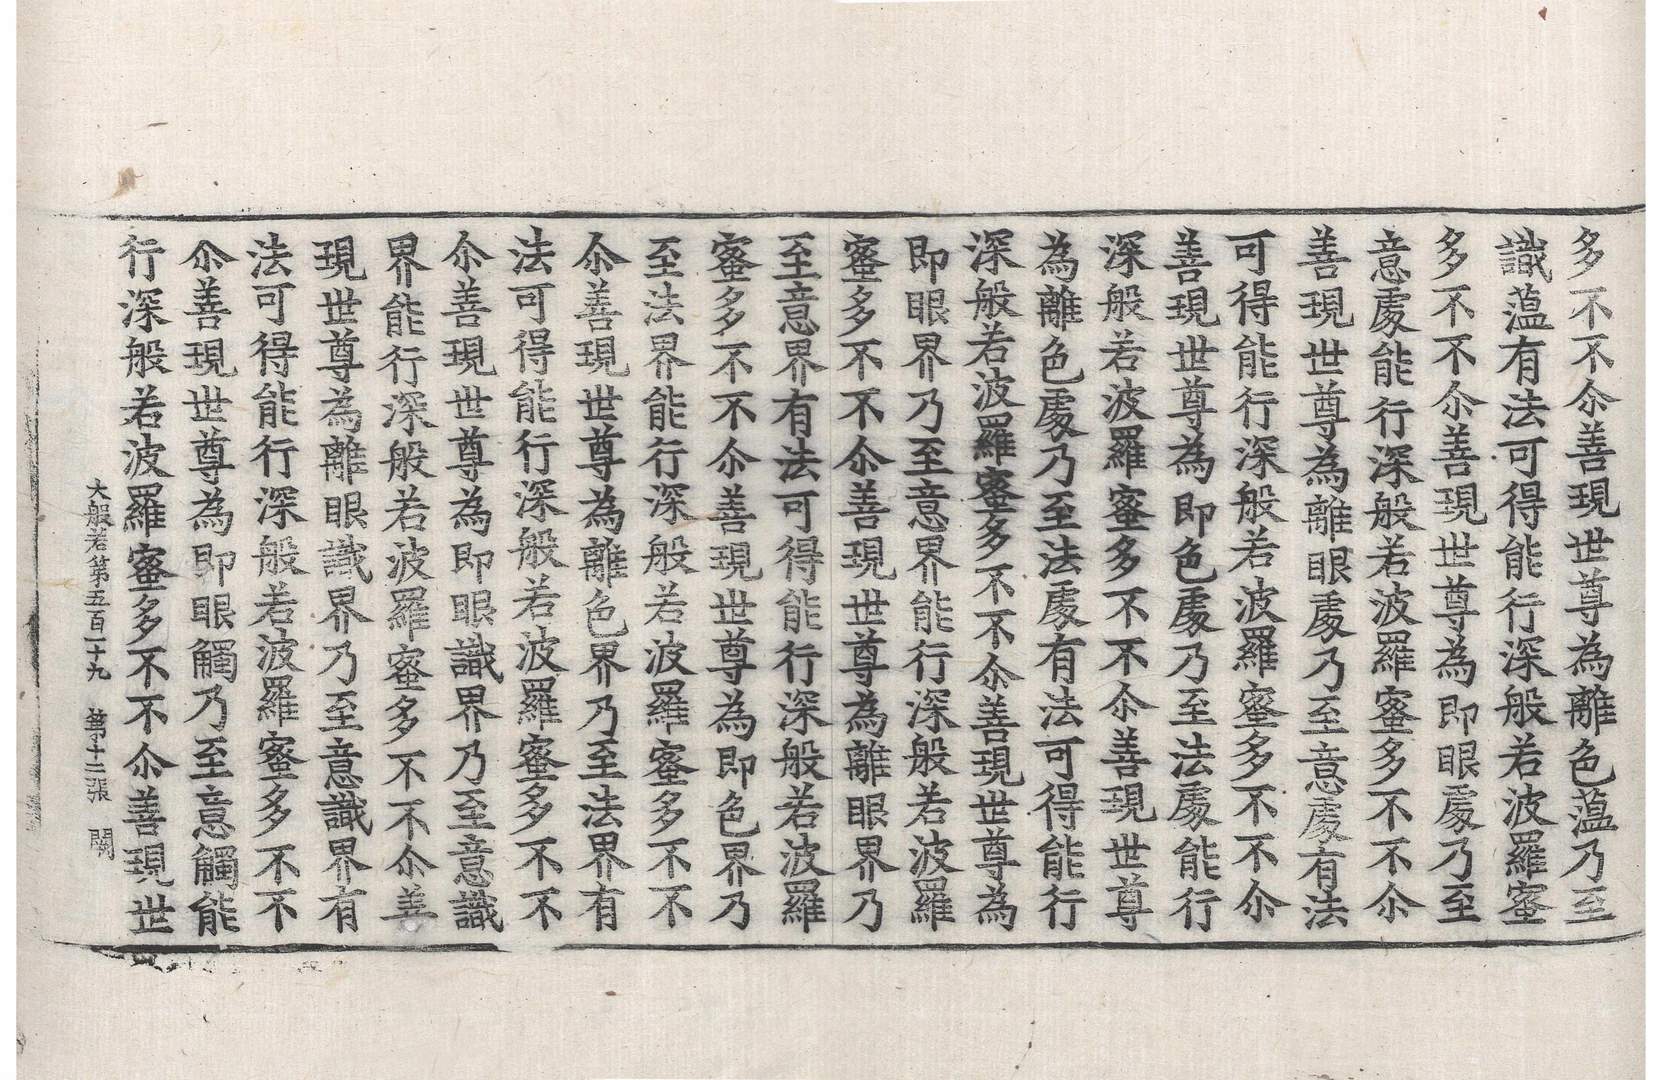 多不不尒善現世尊為離色蘊乃至
識蘊有法可得能行深般若波羅蜜
多不不尒善現世尊為即眼處乃至
意處能行深般若波羅蜜多不不尒
善現世尊為離眼處乃至意處有法
可得能行深般若波羅蜜多不不尒
善現世尊為即色處乃至法處能行
深般若波羅蜜多不不尒善現世尊
為離色處乃至法處有法可得能行
深般若波羅蜜多不不尒善現世尊為
即眼界乃至意界能行深般若波羅
蜜多不不尒善現世尊為離眼界乃
至意界有法可得能行深般若波羅
蜜多不不尒善現世尊為即色界乃
至法界能行深般若波羅蜜多不不
尒善現世尊為離色界乃至法界有
法可得能行深般若波羅蜜多不不
尒善現世尊為即眼識界乃至意識
界能行深般若波羅蜜多不不尒善
現世尊為離眼識界乃至意識界有
法可得能行深般若波羅蜜多不不
尒善現世尊為即眼觸乃至意觸能
行深般若波羅蜜多不不尒善現世
大般若第五百二十九 第十二張 闕